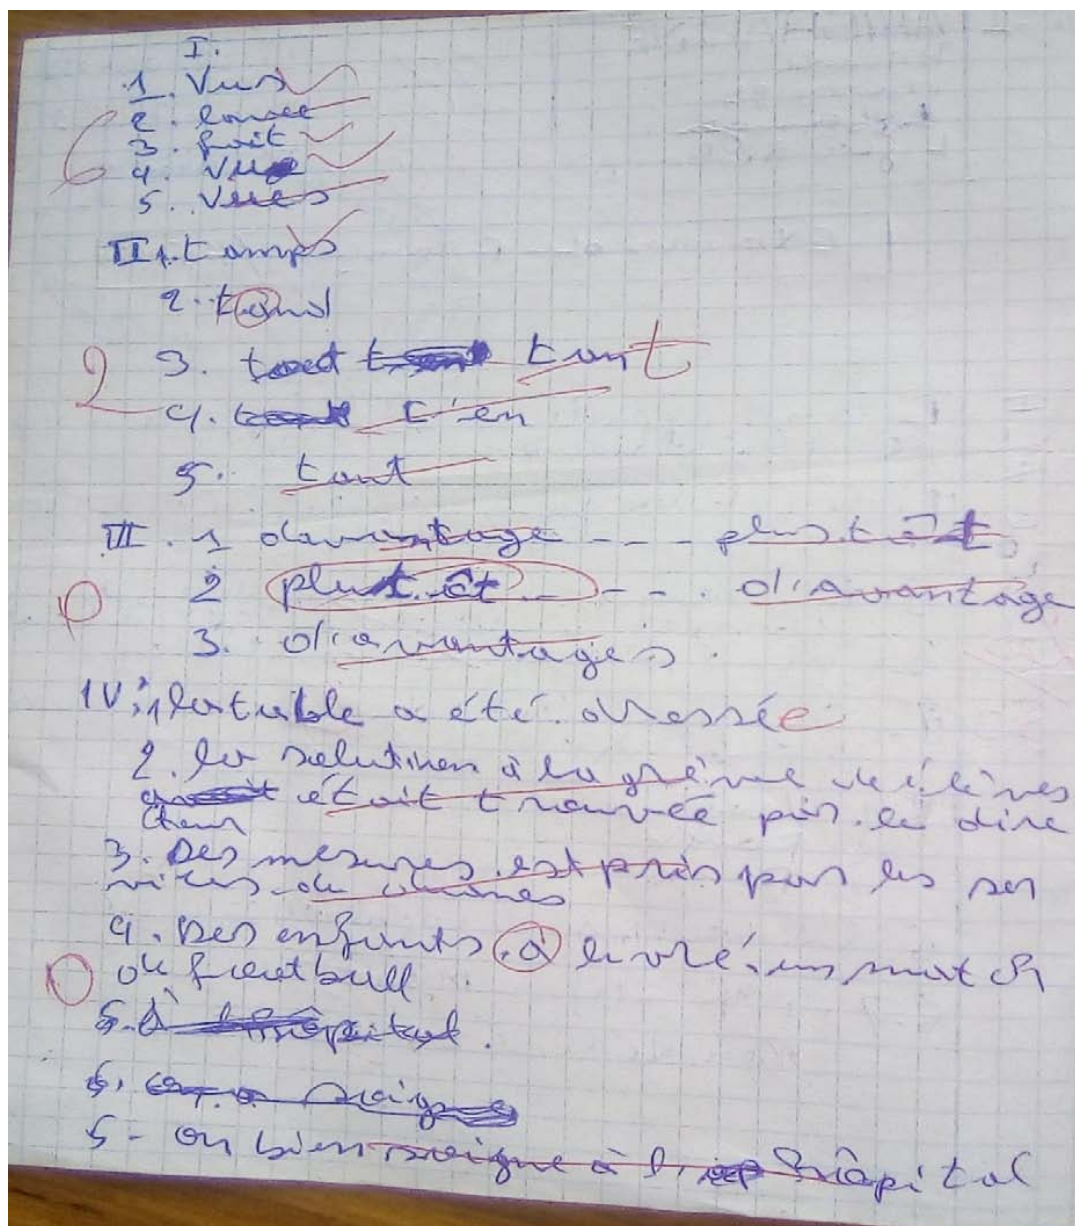 I.
1. Vus
2. lancée
3. fait
4. vu
5. Vues
6
II 1. tamps
2. tand
3. tant
2
4. t'en
5. tant
III. 1 davantage --- plus.tôt
2 plut.ôt --- . d'avantage
0
3. d'avantages.
IV. 1 la table a été dressée
2. la solution à la grève
était trouvée par le dire
cteur
3. Des mesures est pris par les ser
vices de
4. Des enfants à livré un match
de football
0
5. À
5. soigne
5 - on bien soigne à l' hôpital